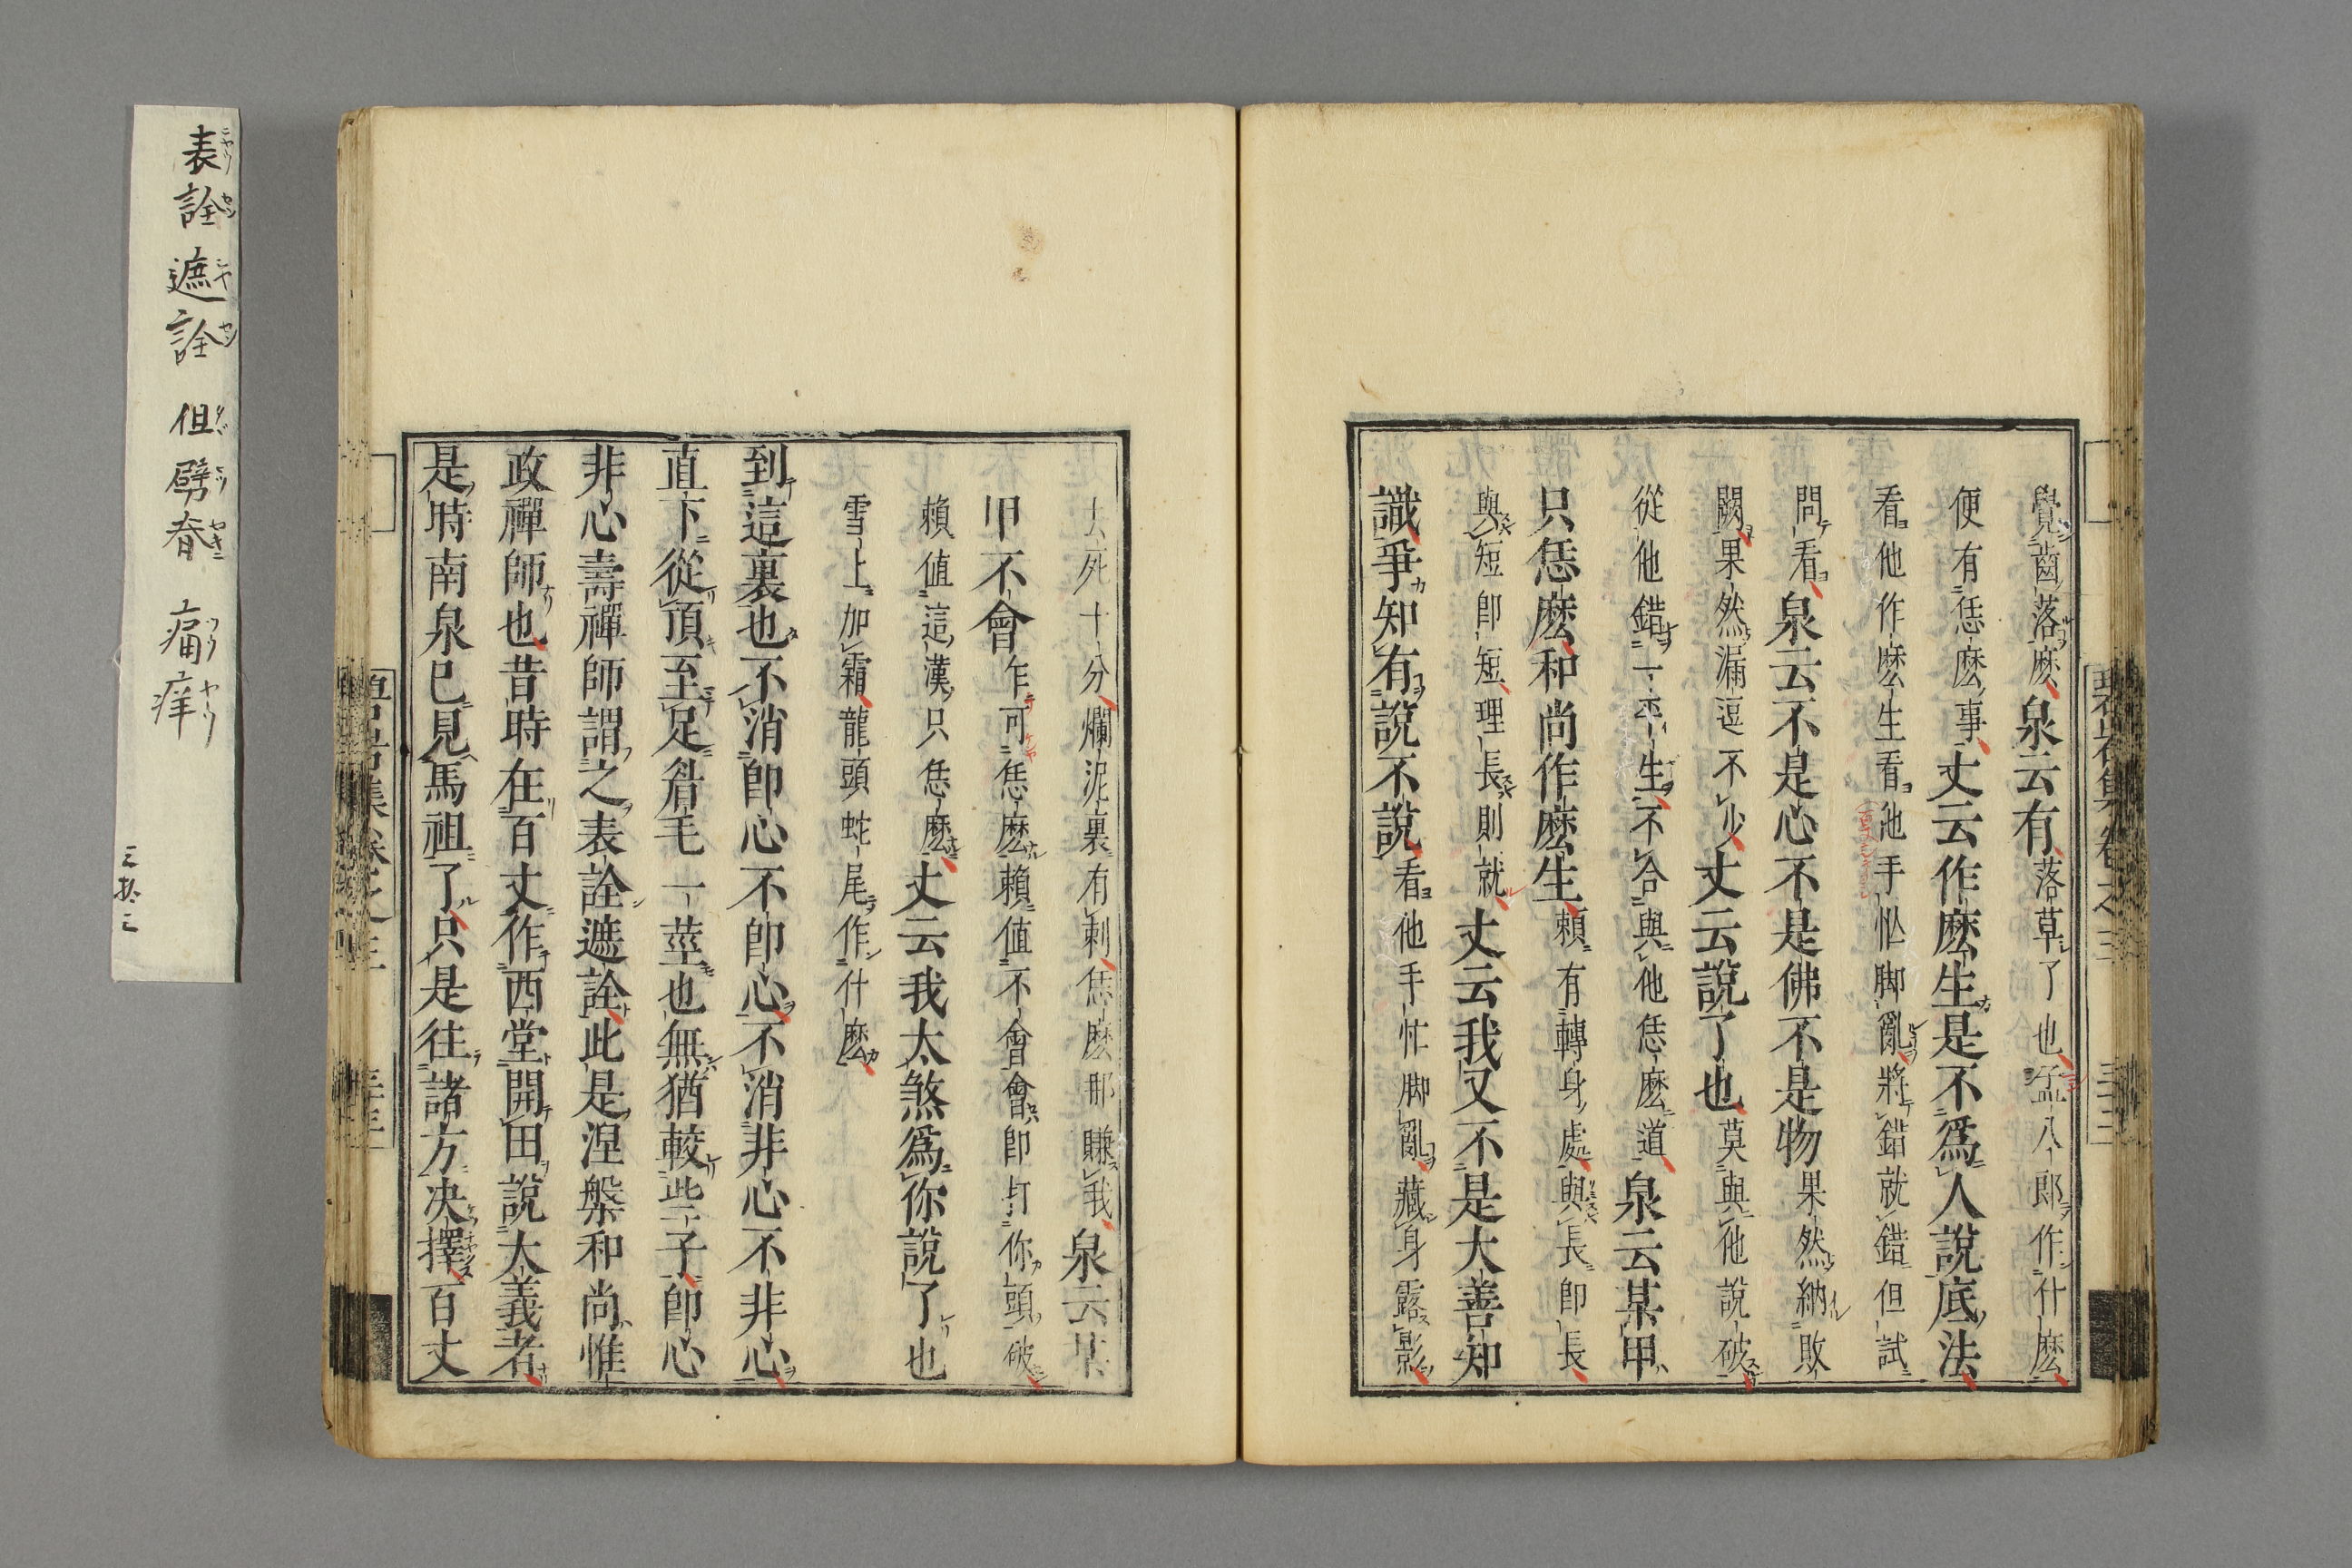 覺齒落麽泉云有落草了也孟八郎作什麽
便有恁麽事丈云作麽生是不爲人說底法
看他作麽生看他手忙脚亂將錯就錯但試
問看泉云不是心不是佛不是物果然納敗
闕果然漏逗不少丈云說了也莫與他說破
從他錯一平生不合與他恁麽道泉云某甲
只恁麽和尚作麽生賴有轉身處與長即長
與短即短理長則就丈云我又不是大善知
識爭知有說不說看他手忙脚亂藏身露影
去死十分爛泥裏有刺恁麽那賺我泉云某
甲不會乍可恁麽賴值不會會即打你頭破
賴值這漢只恁麽丈云我太煞爲你說了也
雪上加霜龍頭蛇尾作什麽
到這裏也不消即心不即心不消非心不非心
直下從頂至足眉毛一莖也無猶較些子即心
非心壽禪師謂之表詮遮詮此是涅槃和尚惟
政禪師也昔時在百丈作西堂開田說大義者
是時南泉已見馬祖了只是往諸方決擇百丈
碧岩集卷之三
表詮遮詮 但劈脊 痛痒